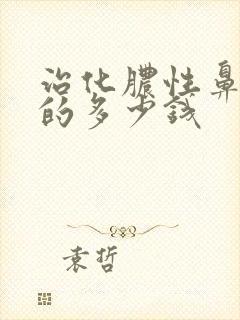 治化脓性鼻
的多少钱
袁哲